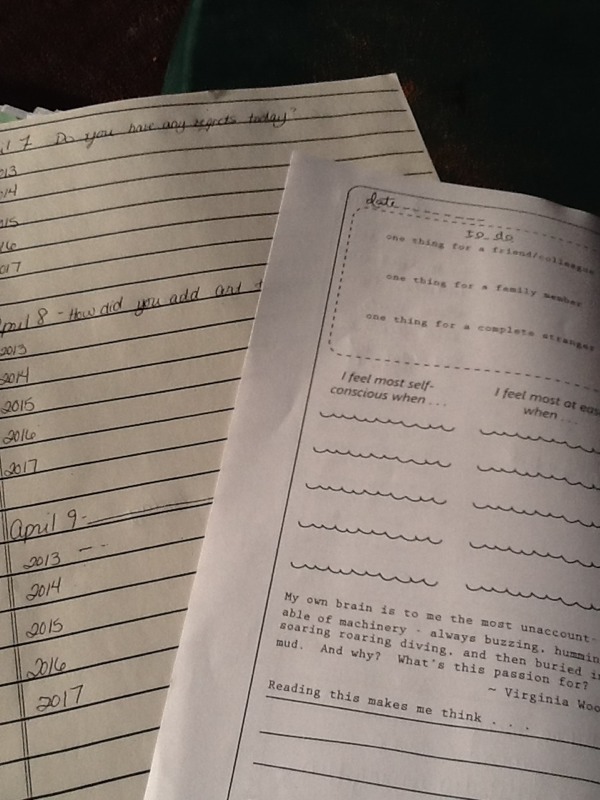 7 Do you have any regrets today?
2013
2014
2015
2016
2017
April 8 - How did you add and
2013
2014
2015
2016
2017
April 9 -
2013 - -
2014
2015
2016
2017
date
to do
one thing for a friend/colleague
one thing for a family member
one thing for a complete stranger
I feel most self-
conscious when . . .
I feel most at ease
when . . .
My own brain is to me the most unaccount-
able of machinery - always buzzing, hummin
soaring roaring diving, and then buried in
mud. And why? What's this passion for?
~ Virginia Woo
Reading this makes me think . . .